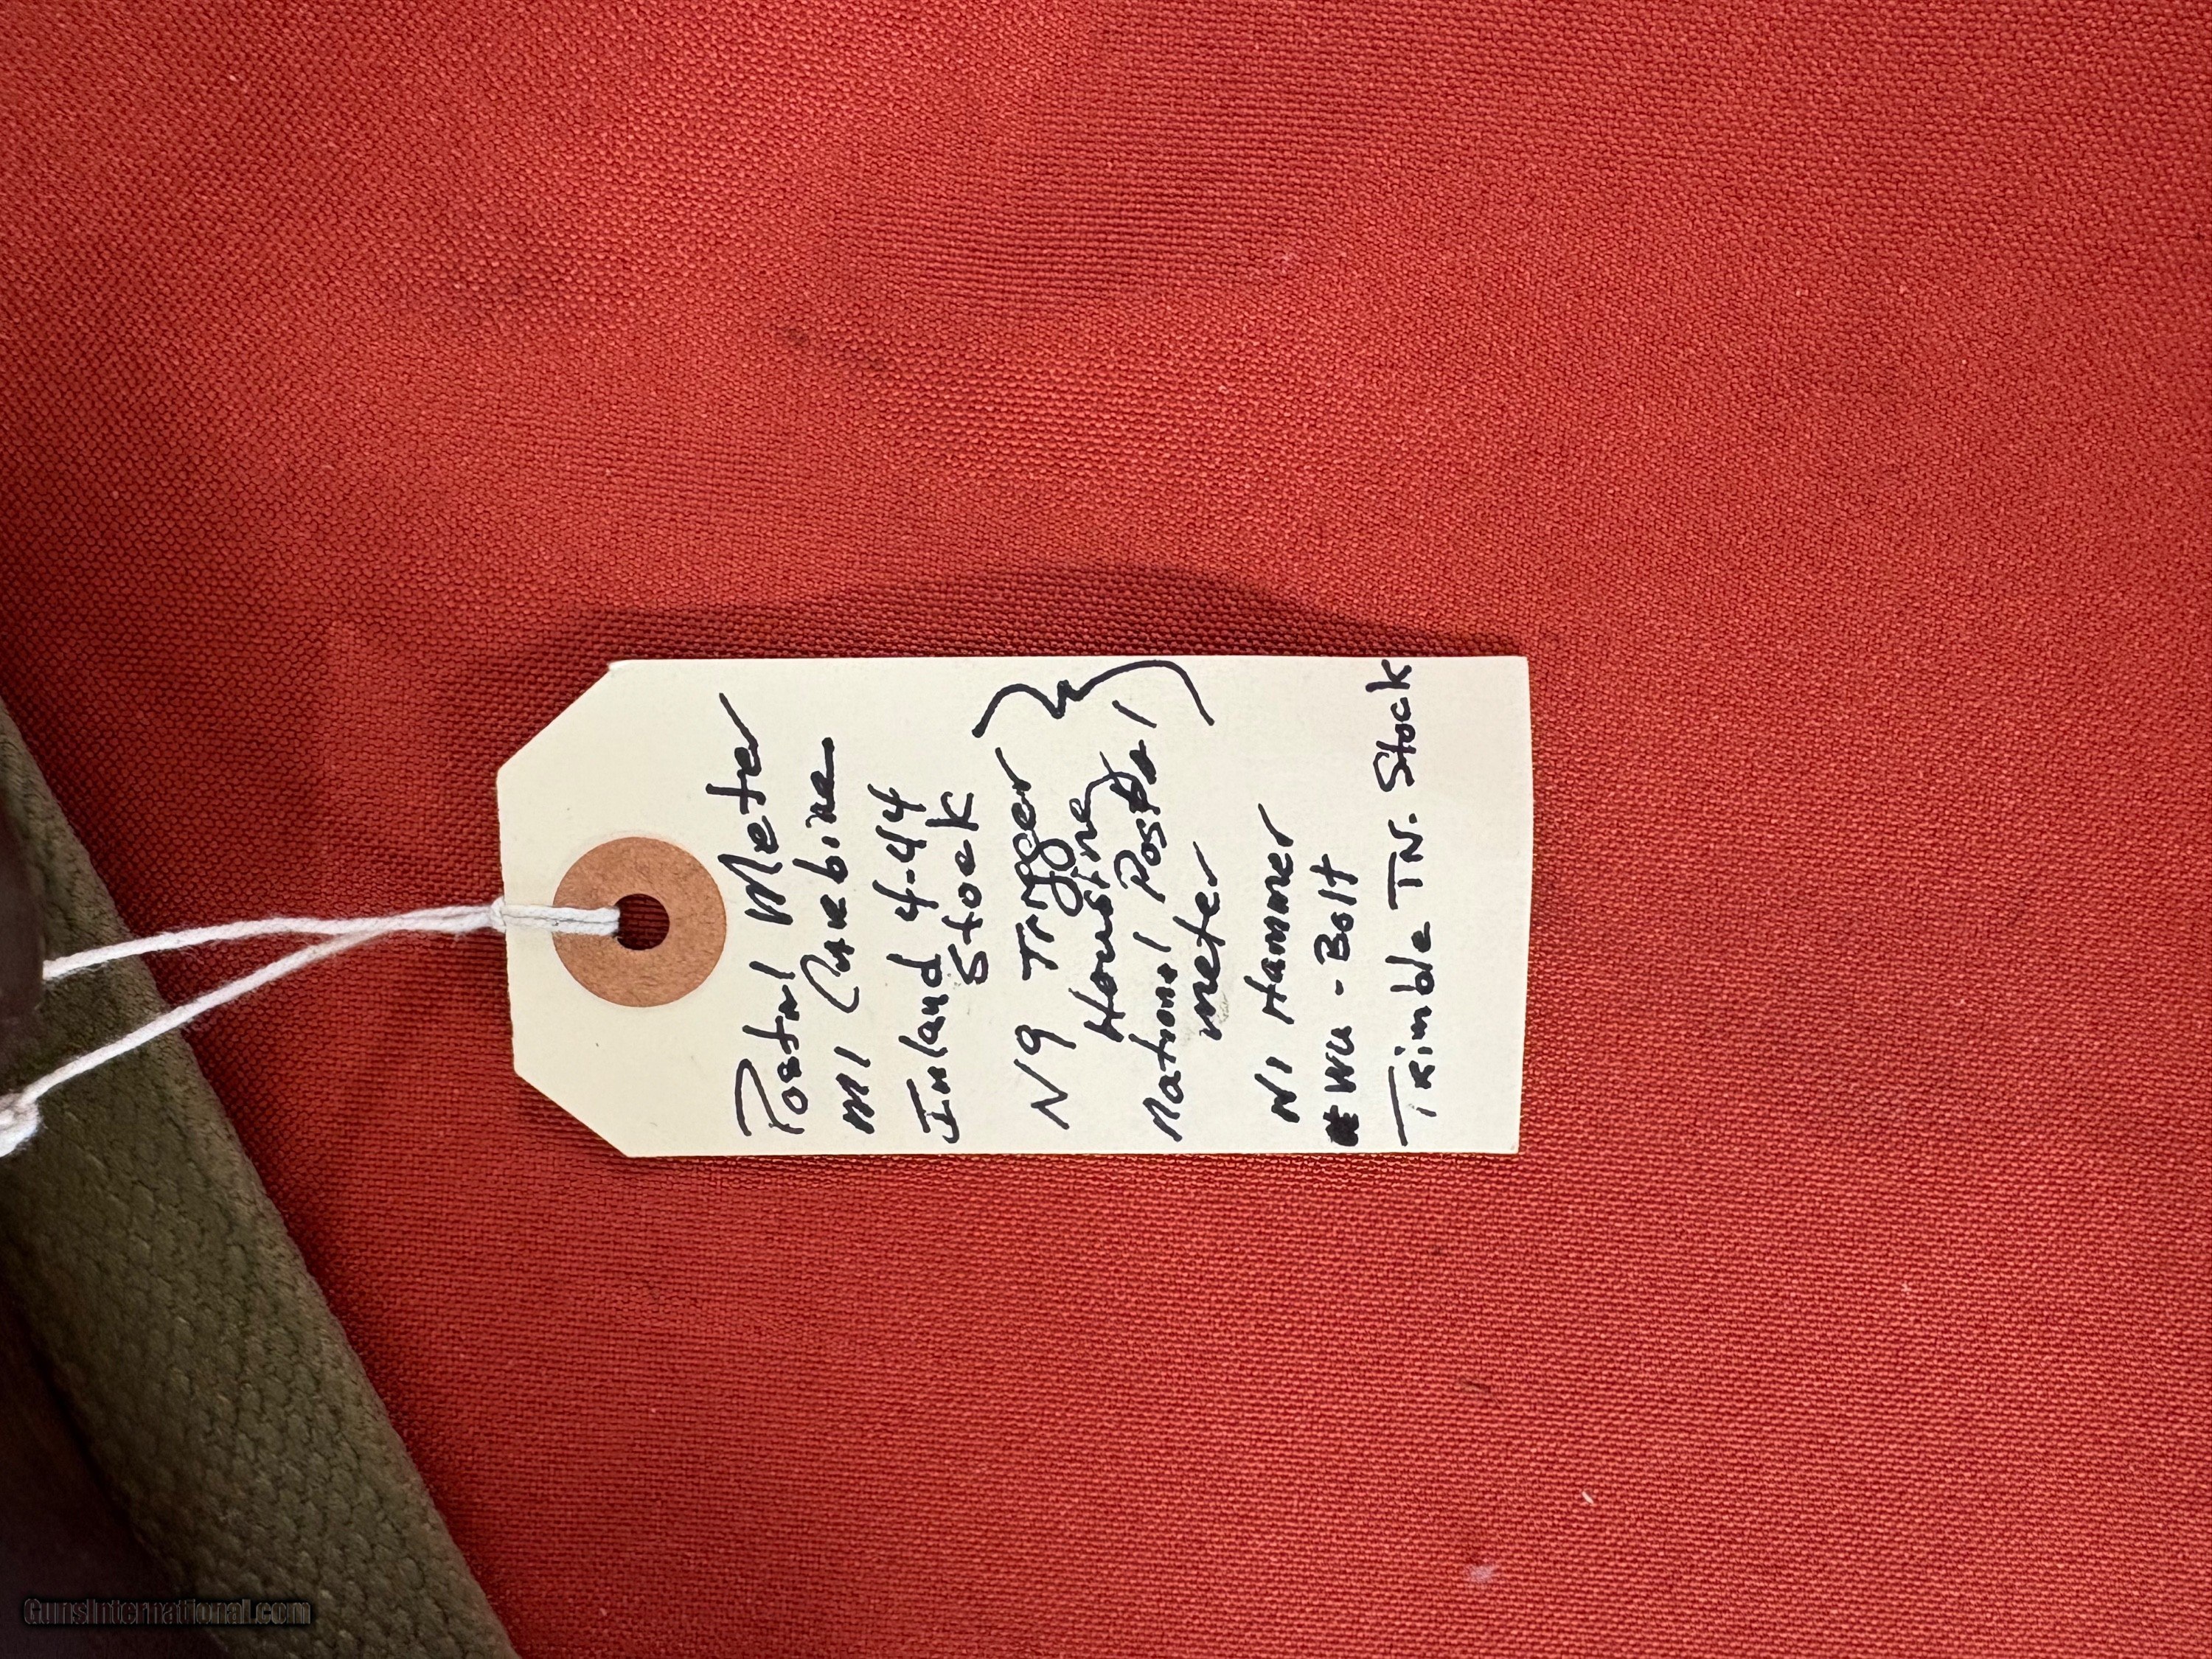 Postal Meter
M1 Carbine
Inland 4-44
Stock
N9 Trigger
Housing
National Postal
meter
NI Hammer
WU - Bolt
Trimble TN. Stock
GunsInternational.com